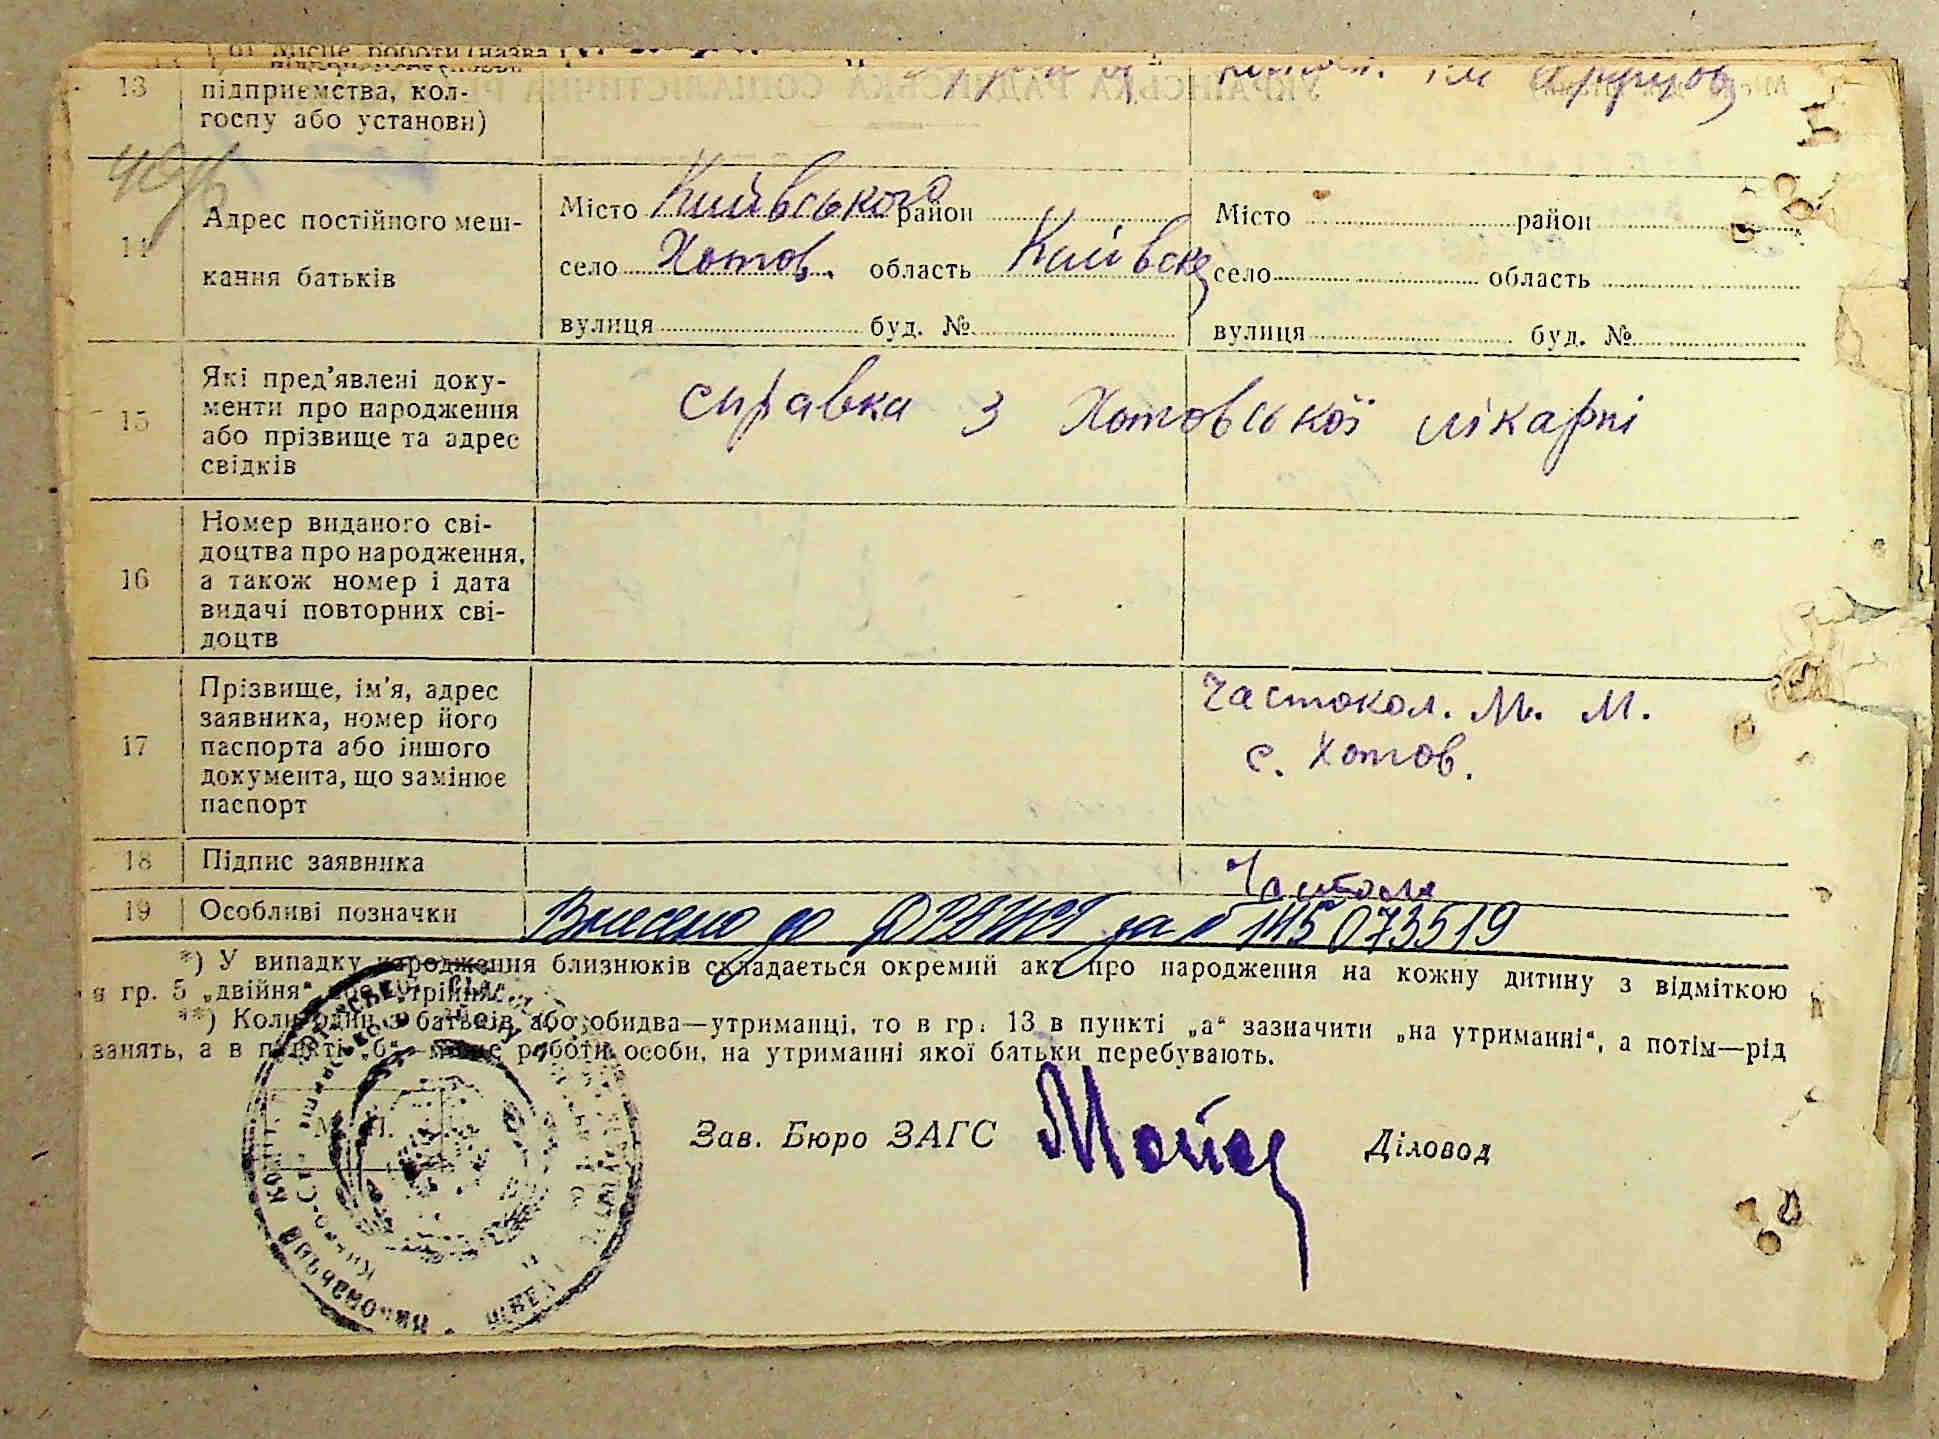 б) Місце роботи (назва
13 підприємства, кол-
госпу або установи)
ім
14 Адрес постійного меш-
кання батьків
Місто Київського район Місто район
село Хотов. область Київська село область
вулиця буд. № вулиця буд. №
15 Які пред’явлені доку-
менти про народження
або прізвище та адрес
свідків
справка з Хотовської лікарні
16 Номер виданого сві-
доцтва про народження,
а також номер і дата
видачі повторних сві-
доцтв
17 Прізвище, ім’я, адрес
заявника, номер його
паспорта або іншого
документа, що замінює
паспорт
Частокол. М. М.
с. Хотов.
18 Підпис заявника
19 Особливі позначки Внесено до ФРАЦСГ за № 145073519
*) У випадку народження близнюків складається окремий акт про народження на кожну дитину з відміткою
в гр. 5 „двійня“ або „трійня“.
**) Коли один з батьків або обидва—утриманці, то в гр. 13 в пункті „а“ зазначити „на утриманні“, а потім—рід
занять, а в пункті „б“—місце роботи особи, на утриманні якої батьки перебувають.
М. П.
Зав. Бюро ЗАГС Діловод